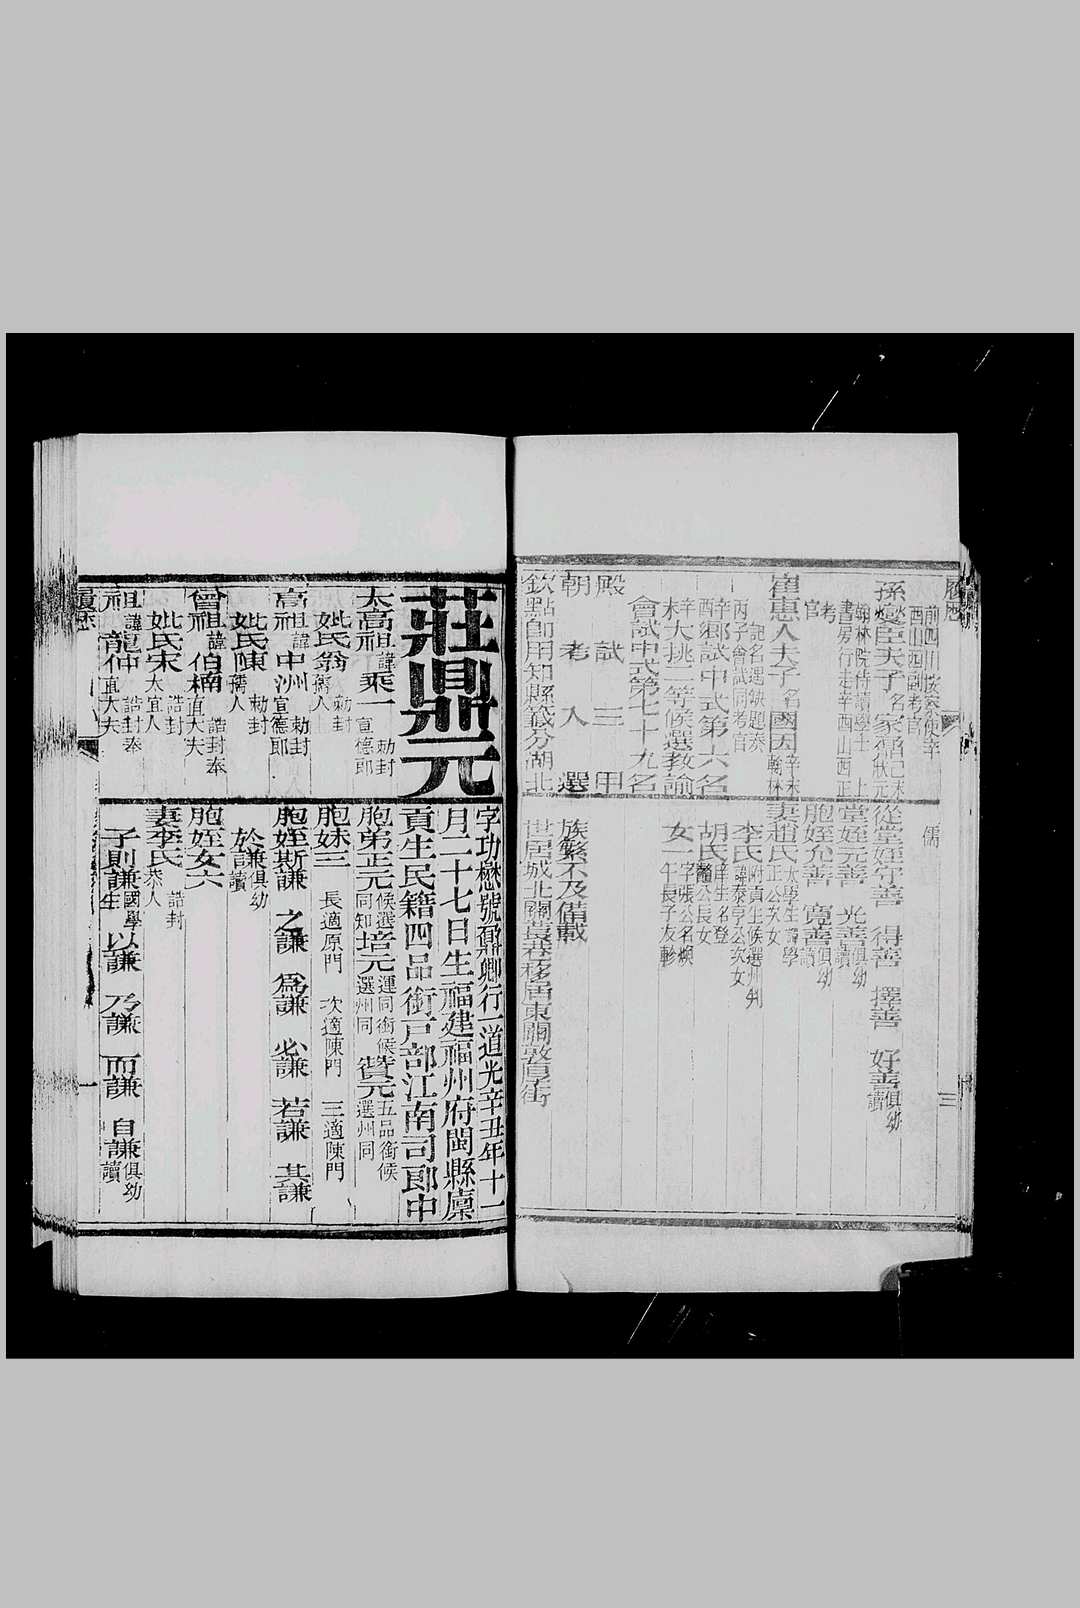 履歷
前四川按察使辛
酉山西副考官
孫燮臣夫子名家鼐己未狀元
翰林院侍讀學士上
書房行走辛酉山西正
考官
崔惠人夫子名國因辛未翰林
記名遇缺題奏
丙子會試同考官
酉鄉試中式第六名
辛未大挑二等候選教諭
會試中式第七十九名
殿試三甲
朝考入選
欽點即用知縣籤分湖北
儒
從堂姪守善 得善 擇善 好善俱幼讀
堂姪元善 光善俱幼讀
胞姪允善 寬善俱幼讀
妻趙氏太學生 正公女
李氏附貢生候選州判諱泰亨公次女
胡氏庠生名登 公長女
女一字張公名 長子友
族繁不及備載
世居城北關 巷移居東關敦 街
三
莊鼎元
太高祖諱乘一勅封宣德郎
妣氏翁勅封孺人
高祖諱中洲勅封宣德郎
妣氏陳勅封孺人
曾祖諱伯楠誥封奉直大夫
妣氏宋誥封太宜人
祖諱龍仲誥封奉直大夫
履歷
字功懋號鼐卿行一道光辛丑年十一
月二十七日生福建福州府閩縣廩
貢生民籍四品銜戶部江南司郎中
胞弟正元候選同知培元運同銜候選州同贊元五品銜候選州同
胞妹三 長適原門 次適陳門 三適陳門
胞姪斯謙 之謙 為謙 必謙 若謙 其謙
於謙俱幼讀
胞姪女六
妻李氏誥封恭人
子則謙國學生以謙 乃謙 而謙 自謙俱幼讀
一